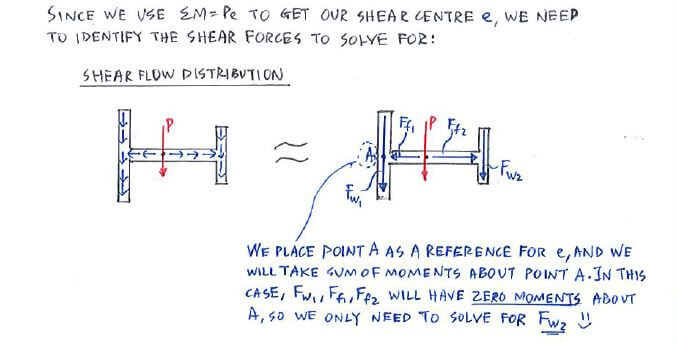 SINCE WE USE ΣM=Pe TO GET OUR SHEAR CENTRE e, WE NEED
TO IDENTIFY THE SHEAR FORCES TO SOLVE FOR:
SHEAR FLOW DISTRIBUTION
P
≈
A
Ff1
P
Ff2
Fw1
Fw2
WE PLACE POINT A AS A REFERENCE FOR e, AND WE
WILL TAKE SUM OF MOMENTS ABOUT POINT A. IN THIS
CASE, Fw1, Ff1, Ff2 WILL HAVE ZERO MOMENTS ABOUT
A, SO WE ONLY NEED TO SOLVE FOR Fw2 !!